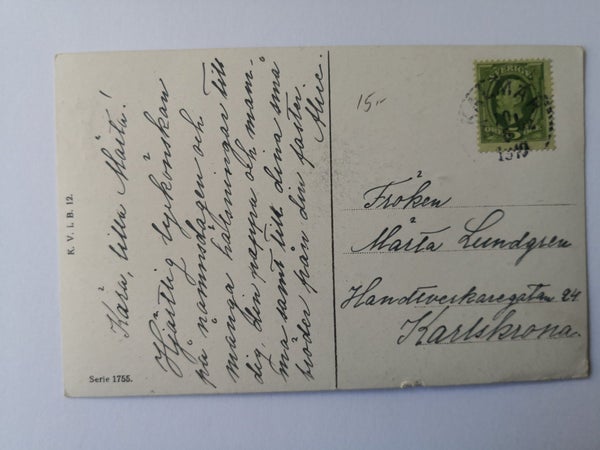 Kära, lilla Märta!
Hjärtlig lyckönskan
på namnsdagen och
många hälsningar till
dig, din pappa och mam-
ma samt till dina små
bröder från din faster
15,-
SVERIGE
KALMAR
1910
Fröken
Märta Lundgren
Handtverkaregatan 24
Karlskrona
K. V. i. B. 12.
Serie 1755.